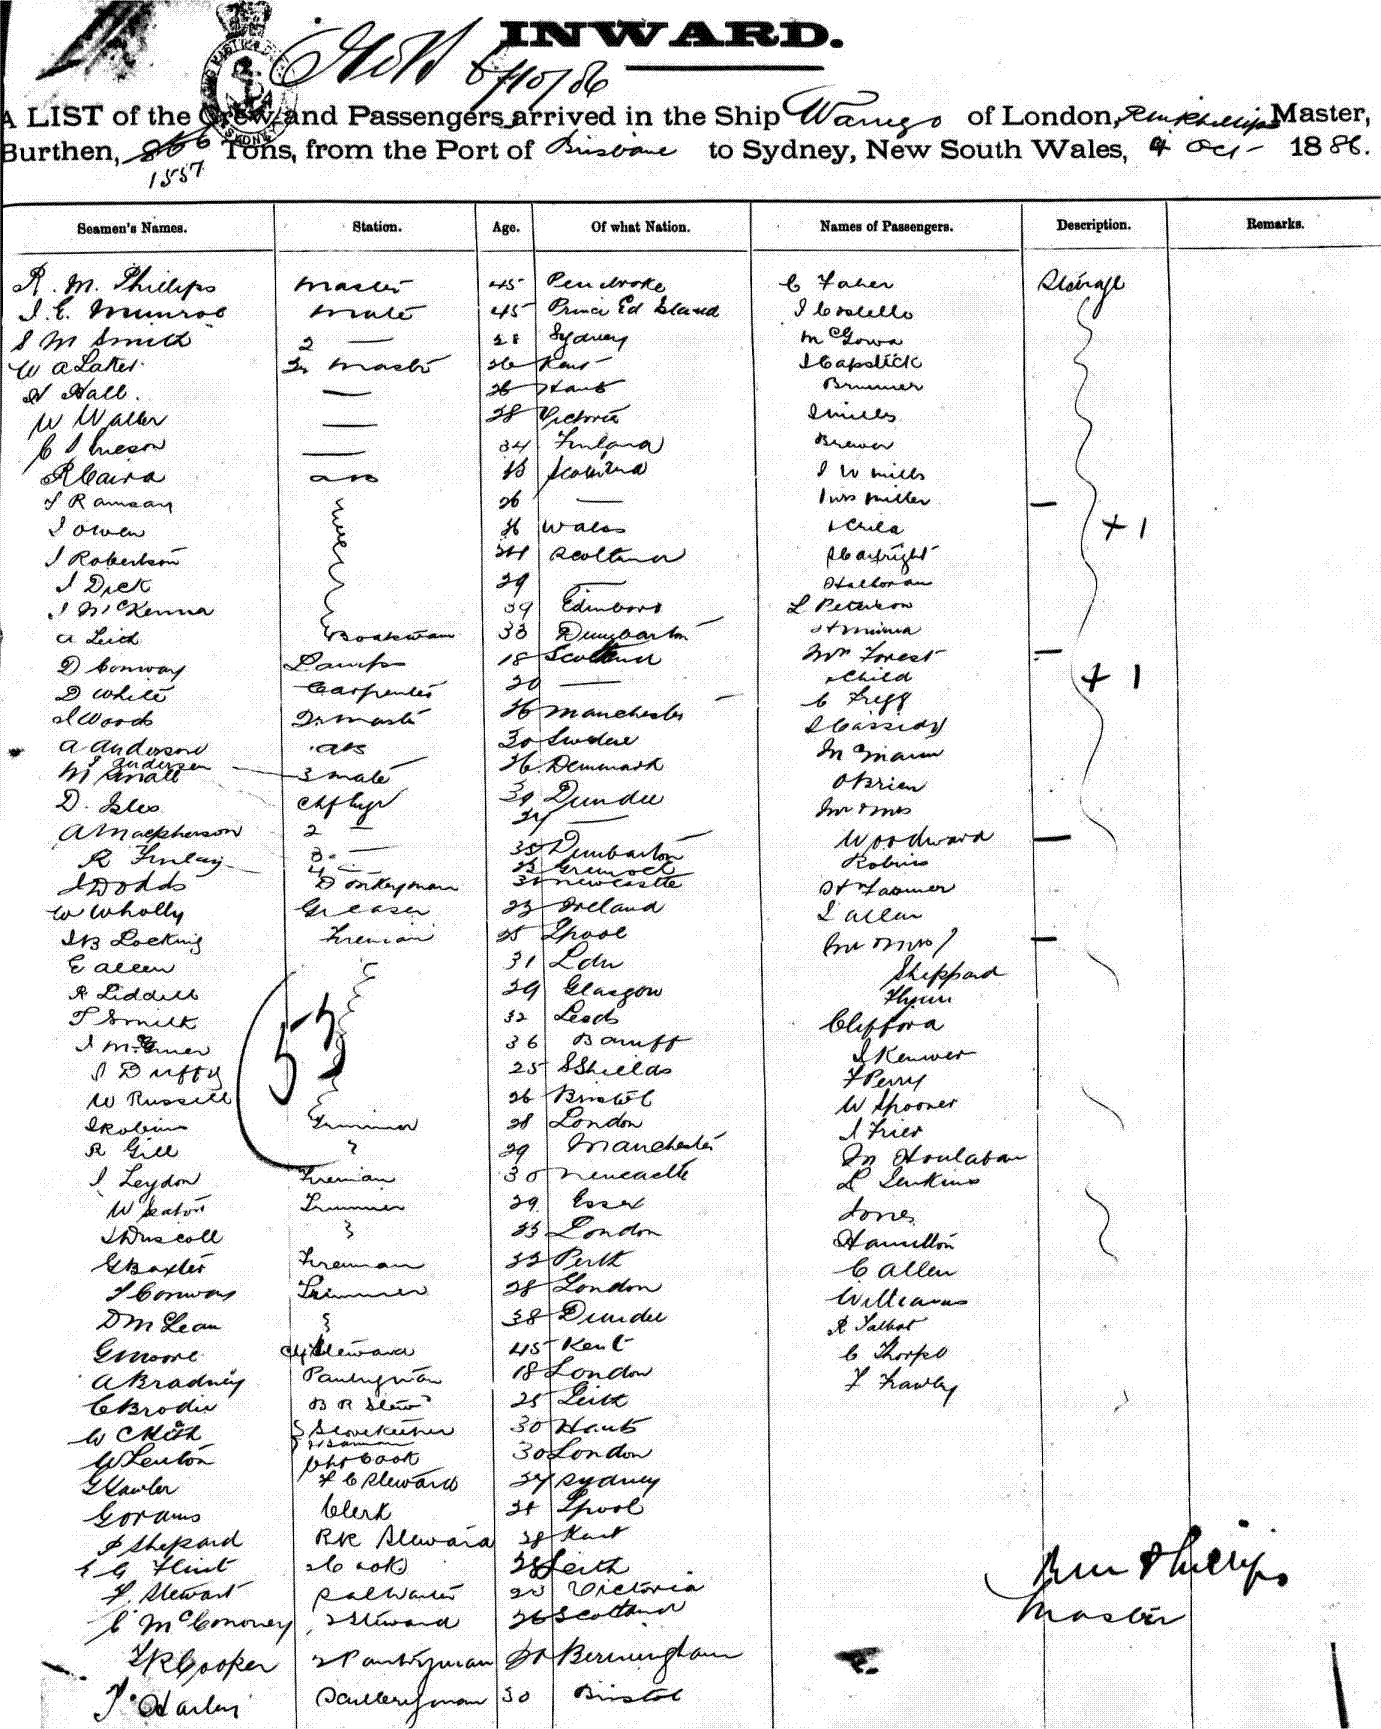 INWARD.
6/10/86
A LIST of the Crew and Passengers arrived in the Ship Warrego of London, R M Phillips Master,
Burthen, 866 Tons, from the Port of Brisbane to Sydney, New South Wales, 4 Oct 1886.
1557
Seamen's Names. Station. Age. Of what Nation. Names of Passengers. Description. Remarks.
R. M. Phillips Master 45 Pembroke C Faher Steerage
J. E. Munroe Mate 45 Prince Ed Island J Costello
S M Smith 2 — 28 Sydney McGowa
W A Lakes Master 26 Kent J Capstick
H Hall. — 26 Hants Brunner
W Waller — 28 Victoria J Mills
— 34 Finland Brewer
R Caird AB Scotland J W Mills
T Ramsay 26 — Mrs Miller —
J Owen 26 Wales + Child + 1
J Robertson 24 Scotland J Cartright
J Dick 29 — Halloran
J McKenna 39 Edinboro L Peterson
A Leith Boatswain 33 Dumbarton
D Conway Lamps 18 Scotland Mrs Forest —
D White Carpenter 20 — + Child + 1
J Woods 26 Manchester C Fregg
A Anderson AB 30 Sweden J Cassidy
J Andersen McMann
M Small 3 mate 26 Denmark O'Brien
D. Isles Chf Engr 39 Dundee Mr & Mrs
A Macpherson 2 — 27 — Woodward —
R Finlay 3. — 35 Dumbarton Robins
4 — Greenock
J Dodds Donkeyman Newcastle H Farmer
W Wholly Greaser 23 Ireland J Allan
J B Locking Fireman 25 Lpool Mr & Mrs —
E Allen 31 Ldn Sheppard
R Liddell 29 Glasgow Flynn
T Smith 32 Leeds Clifford
53
36 Banff J Kenwer
J Duffy 25 S Shields F Perry
W Russell 26 Bristol W Spooner
J Robins Trimmer 28 London J Frier
R Gill 29 Manchester M Houlahan
J Leydon Fireman 30 Newcastle L Jenkins
W Seaton Trimmer 29 Essex Jones
J Driscoll 23 London Hamilton
G Baxter Fireman 33 Perth C Allen
T Conway Trimmer 28 London Williams
D McLean 38 Dundee R Talbot
G Moore Chf Steward 45 Kent C Thorpe
A Bradney Pantryman 18 London F Frawley
C Brodie B R Stewd 25 Leith
Storekeeper 30 Hants
W Lenton Chf Cook 30 London
G Lawler F C Steward 27 Sydney
G Orams Clerk 21 Lpool
J Shepard R R Steward 28 Kent
E G Flint 2 Cook 28 Leith
F. Stewart Sal Waiter 20 Victoria
C McConovey 2 Steward 26 Scotland
F R Cooper 2 Pantryman 20 Birmingham
F. Harley Sculleryman 30 Bristol
R M Phillips
Master